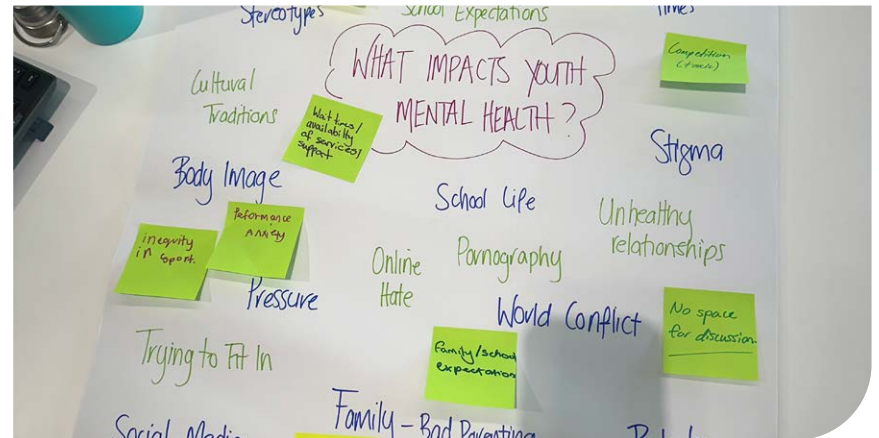 Stereotypes
School Expectations
Times
WHAT IMPACTS YOUTH
MENTAL HEALTH?
Competition
Cultural
Traditions
Wait times/
availability
of services/
support
Stigma
Body Image
School Life
Unhealthy
relationships
Peformance
Anxiety
inequity
in sport.
Online
Hate
Pornography
Pressure
World Conflict
No space
for discussion
Trying to Fit In
Family/school
expectations
Social Media
Family - Bad Parenting